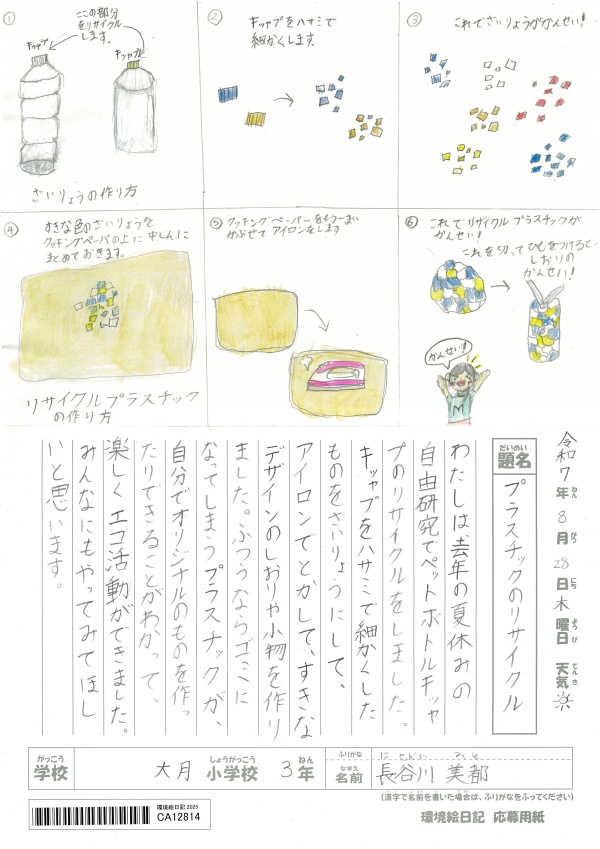 ①
ここの部分
をリサイクル
します。
キャップ
キャップ
ざいりょうの作り方
②
キャップをハサミで
細かくします。
③
これでざいりょうがかんせい!
④
すきな色のざいりょうを
クッキングペーパの上に中しんに
まとめておきます。
リサイクルプラスチック
の作り方
⑤
クッキングペーパーをもう一まい
かぶせてアイロンをします
⑥
これでリサイクルプラスチックが
かんせい!
これを切ってひもをつけると…
しおりの
かんせい!
かんせい!!
M
令和7年8月28日木曜日 天気
ねん がつ にち ようび てんき
だいめい
題名
プラスチックのリサイクル
わたしは、去年の夏休みの
自由研究でペットボトルキャッ
プのリサイクルをしました。
キャップをハサミで細かくした
ものをざいりょうにして、
アイロンでとかして、すきな
デザインのしおりや小物を作り
ました。ふつうならゴミに
なってしまうプラスチックが、
自分でオリジナルのものを作っ
たりできることがわかって、
楽しくエコ活動ができました。
みんなにもやってみてほし
いと思います。
がっこう しょうがっこう ねん
学校 大月 小学校 3年
ふりがな
なまえ
名前 長谷川 美都
(漢字で名前を書いた場合は、ふりがなをふってください)
環境絵日記 2025
CA12814
環境絵日記 応募用紙